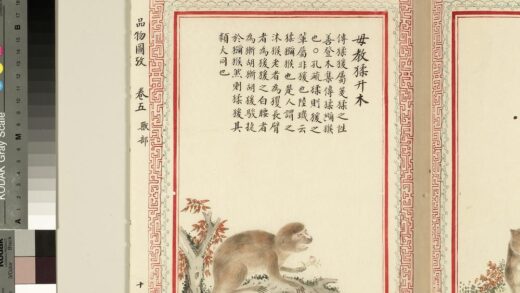 毋教猱升木
傳猱猨屬箋猱之性
善登木集傳猱獼猴
也○孔疏猱則猨之
輩屬非猨也陸璣云
猱獼猴也楚人謂之
沐猴老者為玃長臂
者為猨猨之白腰者
為獑胡獑胡猨駿捷
於獼猴然則猱猨其
類大同也
品物圖攷 卷五 獸部 十
KODAK Gray Scale
A
M